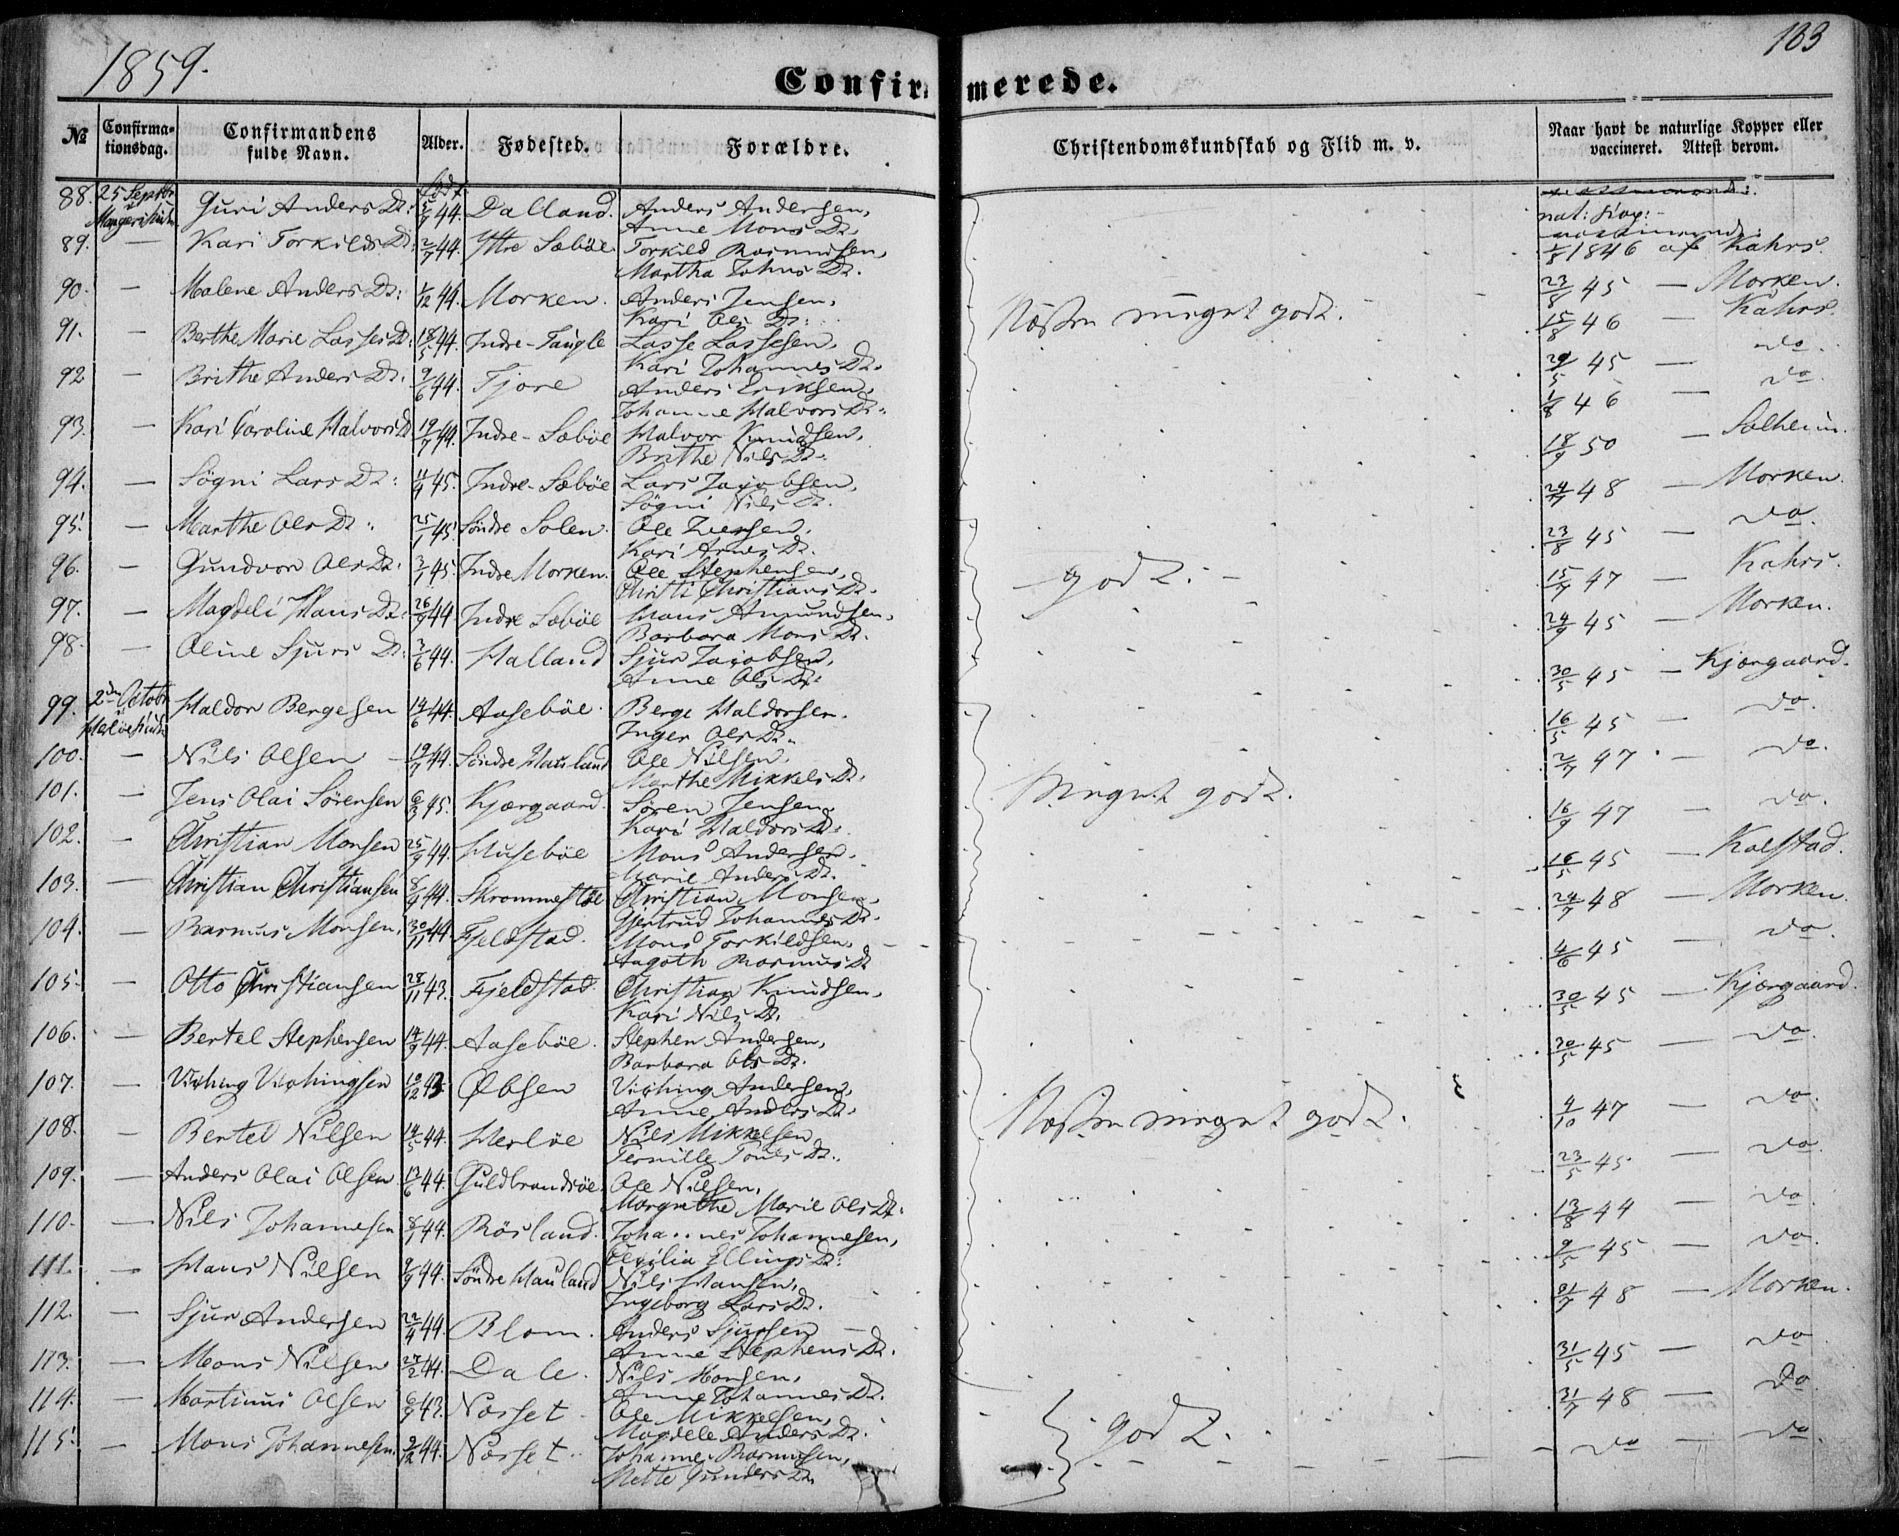 1859.
163
Confirmerede.
№
Confirmationsdag.
Confirmandens fulde Navn.
Alder.
Fødested.
Forældre.
Christendomskundskab og Flid m. v.
Naar havt de naturlige Kopper eller vaccineret. Attest derom.
88. 25 Septbr Guri Anders Dr: født 44. Dalland. Anders Andersen, Anne Mons Dr. nat: Kop:
89. — Kari Torkilds Dr: 2/7 44. Ytre Sæbøe Torkild Rasmussen, Martha Johns Dr. 1/8 1846 af Kahrs.
90. — Malene Anders Dr: 1/12 44. Morken. Anders Jensen, Kari Ols Dr: 23/8 45 — Morken.
Næsten meget godt.
91. — Berthe Marie Lasses Dr: 18/5 44. Indre-Fangle Lasse Lassesen, Kari Johannes Dr. 15/8 46 — Kahrs.
92 — Brithe Anders Dr: 9/6 44. Tjore Anders Eriksen, Johanne Halvors Dr: 29/5 45 — do.
93. — Kari Caroline Halvors D 19/7 44. Indre-Sæbøe Halvor Knudsen, Brithe Nils Dr. 1/8 46 — do.
94. — Søgni Lars Dr: 11/4 45. Indre-Sæbøe Lars Jacobsen, Søgni Nils Dr. 18/9 50 — Solheim.
95. — Marthe Ols Dr: 25/1 45. Søndre Solen. Ole Iversen, Kari Arnes Dr. 24/7 48 — Morken.
96. — Gundvor Ols Dr: 3/1 45. Indre Morken. Ole Stephensen, Christi Christians Dr. 23/8 45 — do.
godt.
97. — Magdeli Hans Dr: 26/9 44. Indre Sæbøe Hans Amundsen, Barbara Mons Dr. 15/7 47 — Kahrs.
98. — Oline Sjurs Dr: 3/6 44. Halland Sjur Jacobsen, Anne Ols Dr. 24/9 45 — Morken.
99. 2den Octob Haldor Bergesen 14/6 44. Aasebøe. Berge Haldorsen, Inger Ols Dr. 30/5 45 — Kjærgaard.
100. — Nils Olsen 19/7 44. Søndre Hauland Ole Nilsen, Marthe Mikkels Dr. 16/5 45 — do.
101. — Jens Olai Sørensen 6/3 45. Kjærgaard. Søren Jensen, Kari Haldors Dr. 2/7 47 do.
Meget godt.
102. — Christian Monsen 25/9 44. Husebøe Mons Andersen, Marie Anders Dr. 16/9 47 — do.
103. — Christian Christiansen 8/9 44. Skrommestøe Christian Monsen, Gjertrud Johannes Dr. 16/5 45 — Kolstad.
104. — Rasmus Monsen, 30/11 44. Fjeldstad. Mons Torkildsen, Angoth Rasmus Dr 24/7 48 — Morken.
105. — Otto Christiansen 28/11 43. Fjeldstad. Christian Knudsen, Kari Nils Dr. 4/6 45 — do.
106. — Bertel Stephensen 14/9 44. Aasebøe. Stephen Andersen, Barbara Ols Dr. 30/5 45 — Kjærgaard.
107. — Viching Vichingsen 10/12 43. Øbsen Viching Andersen, Anne Anders Dr. 30/5 45 — do.
108. — Bertel Nilsen 14/5 44. Herløe Nils Mikkelsen Pernille Tones Dr. 4/10 47 — do.
Næsten meget godt.
109. — Anders Olai Olsen 13/6 44. Guldbrandsøe. Ole Nilsen, Margrethe Marie Ols Dr: 23/5 45 do.
110. — Nils Johannesen 8/1 44. Røsland. Johannes Johannesen, Cecilia Ellings Dr. 13/8 44 — do.
111. — Hans Nilsen 9/9 44. Søndre Hauland Nils Hansen, Ingeborg Lars Dr. 9/5 45 — do.
112. — Sjur Andersen 22/4 44. Blom. Anders Sjursen Anne Stephens Dr. 31/7 48 — Morken.
113. — Mons Nilsen 27/2 44. Dale. Nils Monsen, Anne Johannes Dr. 31/5 45 — do
114. — Martinus Olsen 6/9 43. Næsset. Ole Mikkelsen, Magdele Anders Dr. 31/7 48 — do.
godt.
115. — Mons Johannesen. 9/12 44. Næsset. Johannes Rasmussen, Mette Gunders Dr. do — do.